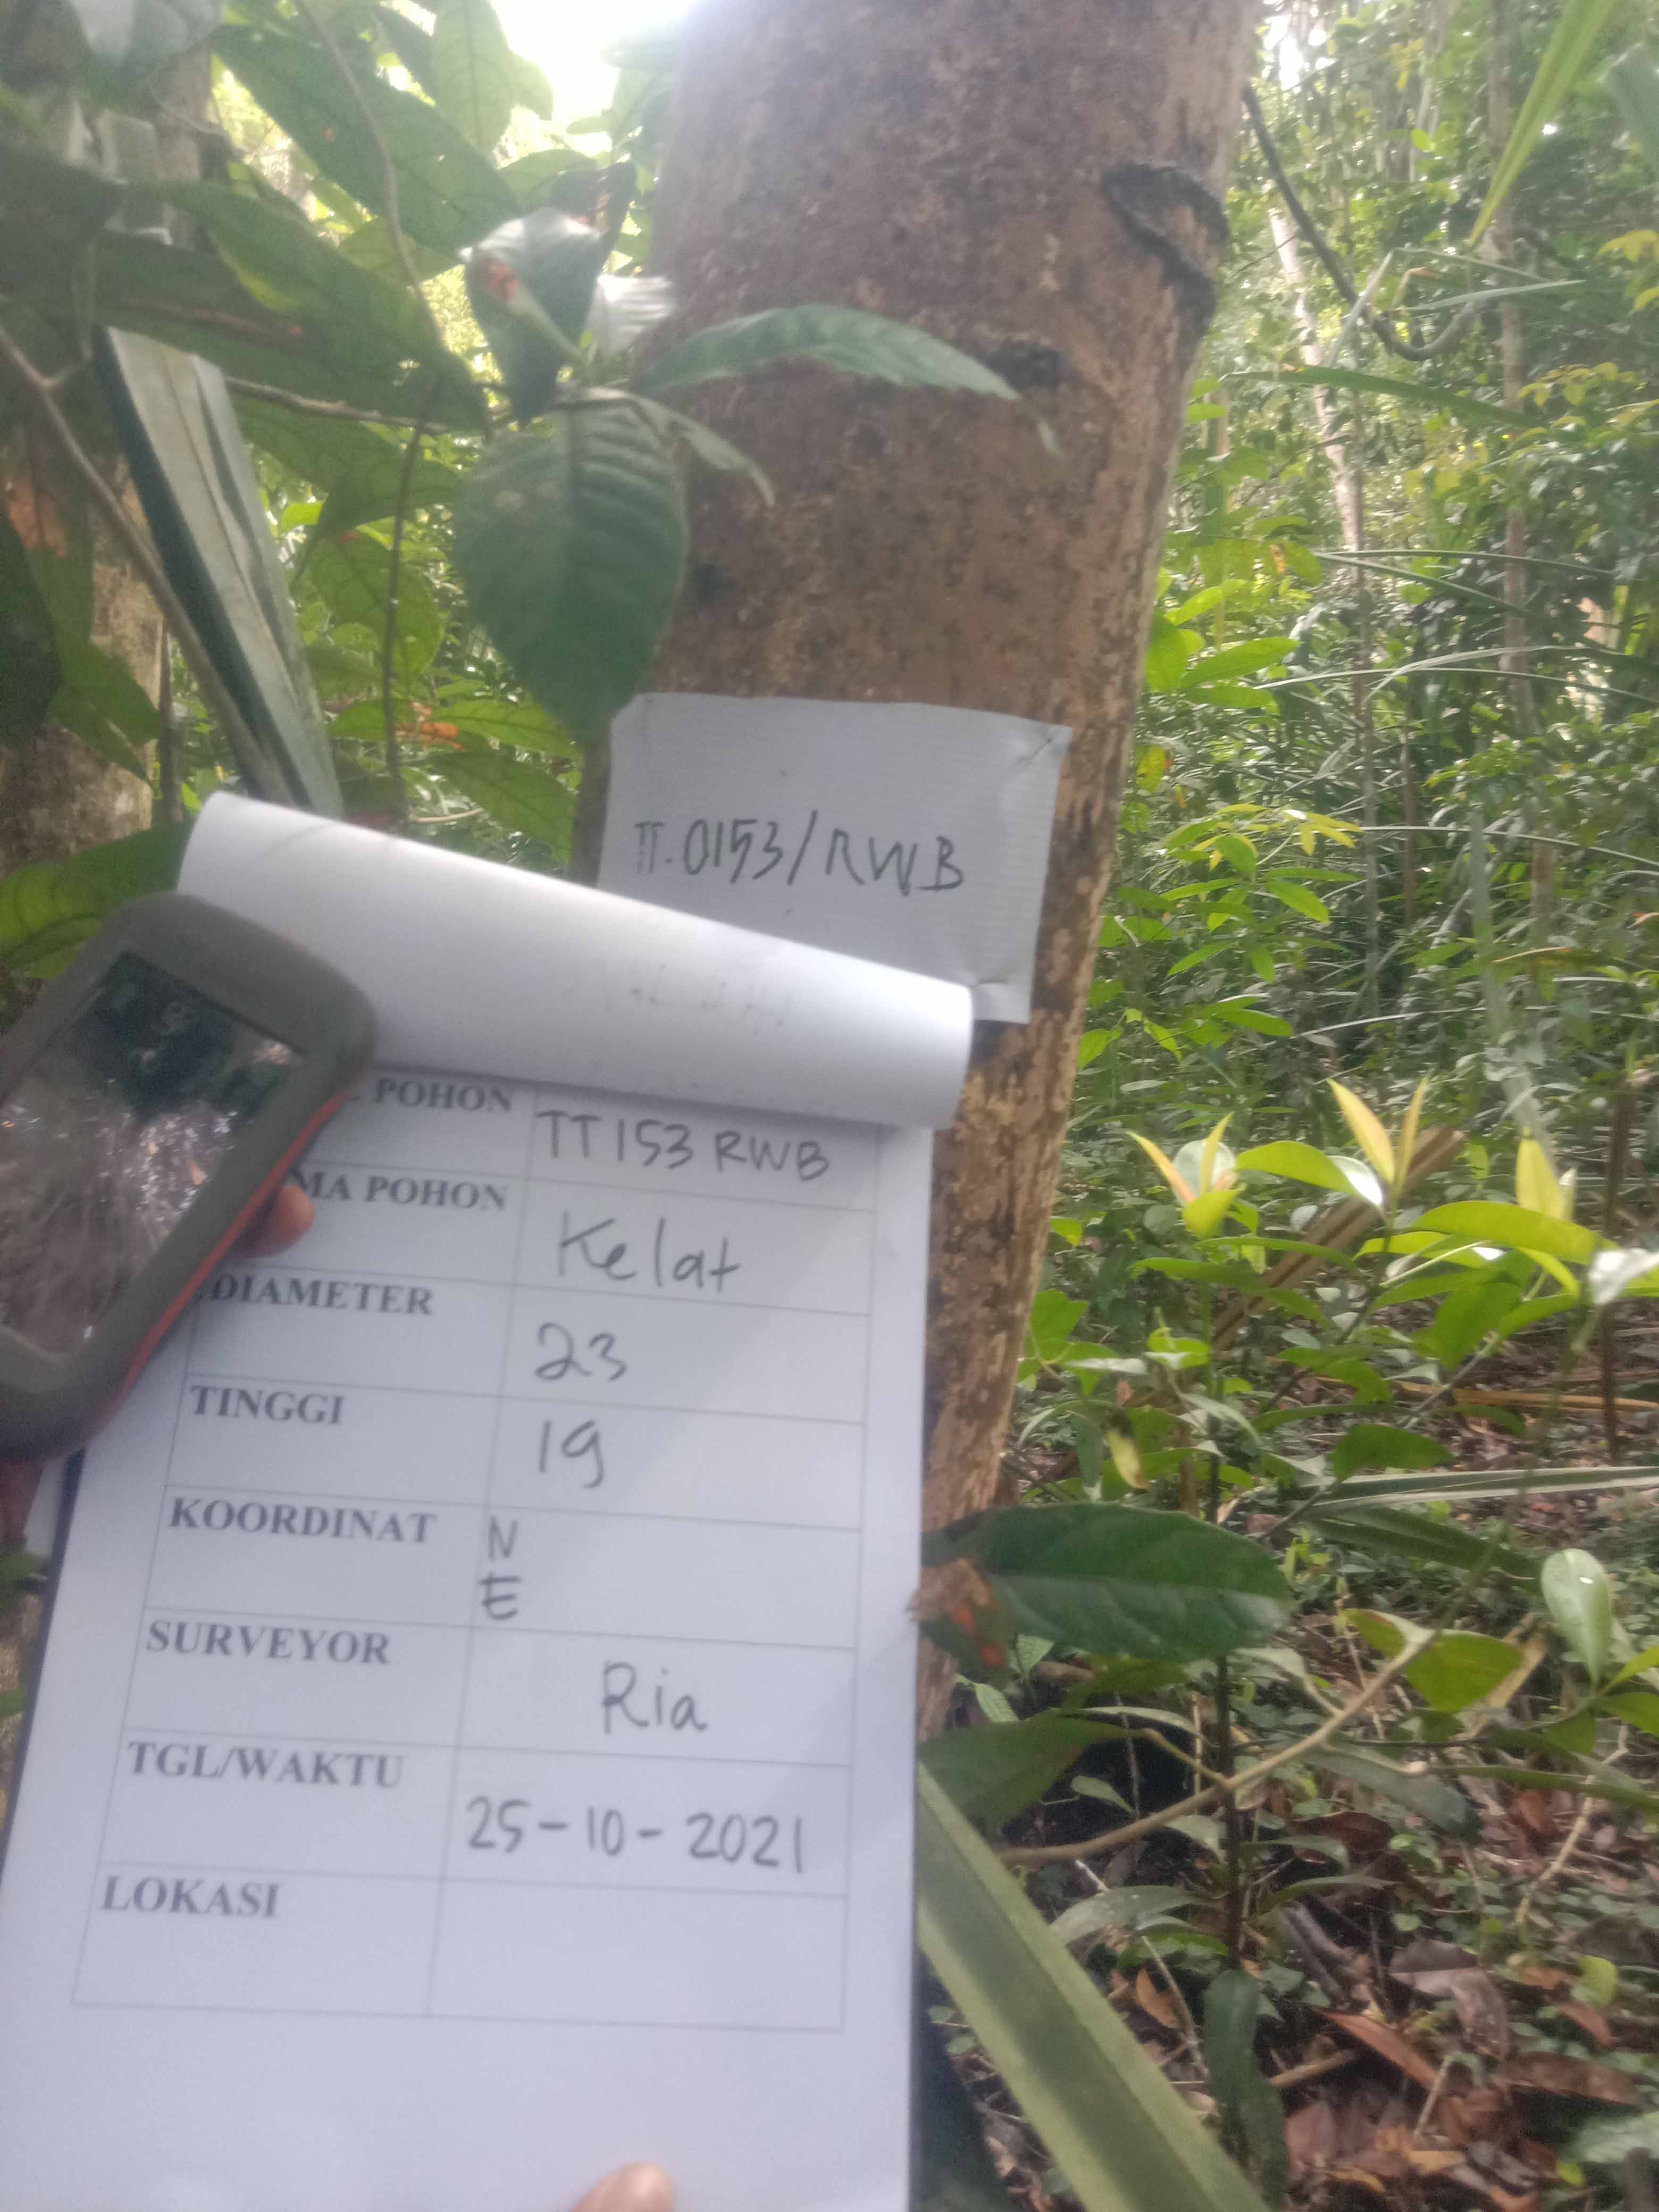 TT.0153/RWB
POHON
TT153 RWB
MA POHON
Kelat
DIAMETER
23
TINGGI
19
KOORDINAT
N
E
SURVEYOR
Ria
TGL/WAKTU
25-10-2021
LOKASI